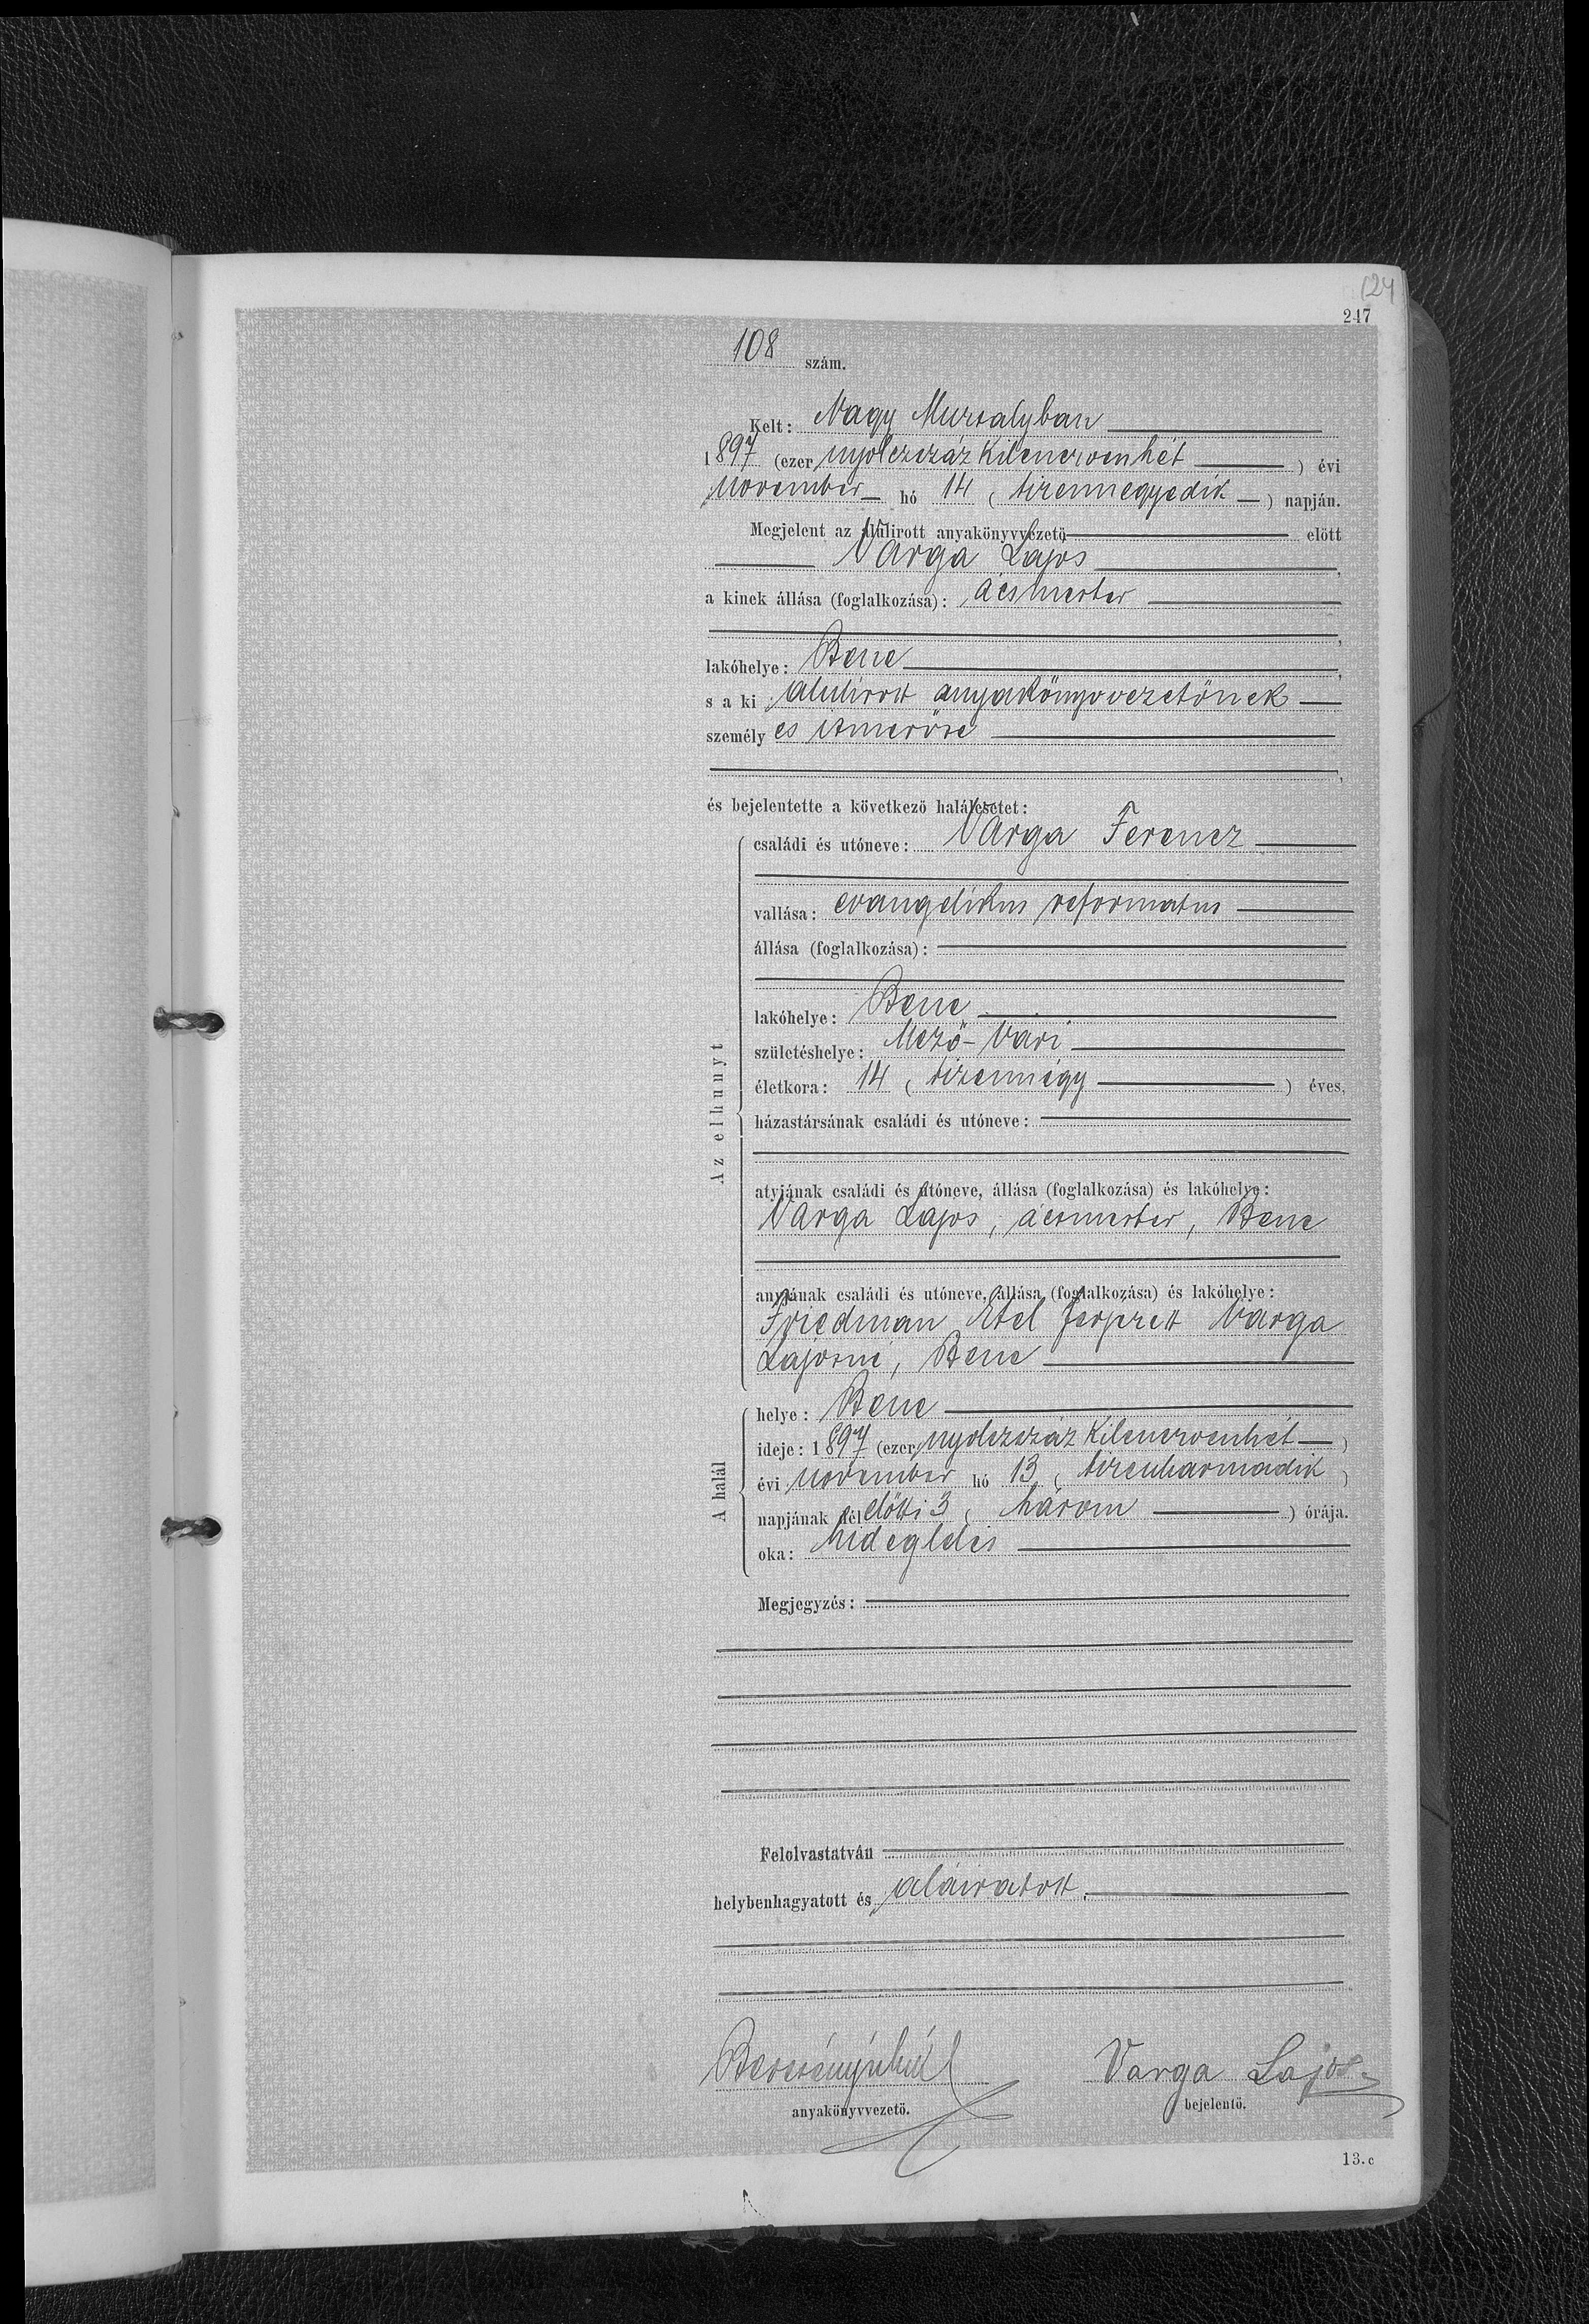 124
247
108 szám.
Kelt: Nagy Muzsalyban
1897 (ezer nyolczszáz kilenczvenhét) évi
november hó 14 (tizennegyedik) napján.
Megjelent az alulirott anyakönyvvezető előtt
Varga Lajos,
a kinek állása (foglalkozása): ácsmester
,
lakóhelye: Bene,
s a ki alulirott anyakönyvvezetőnek
személyes ismerőse
,
és bejelentette a következő halálesetet:
Az elhunyt
családi és utóneve: Varga Ferencz
vallása: evangelikus reformatus
állása (foglalkozása):
lakóhelye: Bene
születéshelye: Mező-Vári
életkora: 14 (tizennégy) éves,
házastársának családi és utóneve:
atyjának családi és utóneve, állása (foglalkozása) és lakóhelye:
Varga Lajos, ácsmester, Bene
anyjának családi és utóneve, állása (foglalkozása) és lakóhelye:
Friedman Etel férjezett Varga
Lajosné, Bene
A halál
helye: Bene
ideje: 1897 (ezer nyolczszáz kilenczvenhét)
évi november hó 13 (tizenharmadik)
napjának délelőtti 3 (három) órája.
oka: hideglelés
Megjegyzés:
Felolvastatván
helybenhagyatott és aláiratott.
Varga Lajos
anyakönyvvezető. bejelentő.
13.c